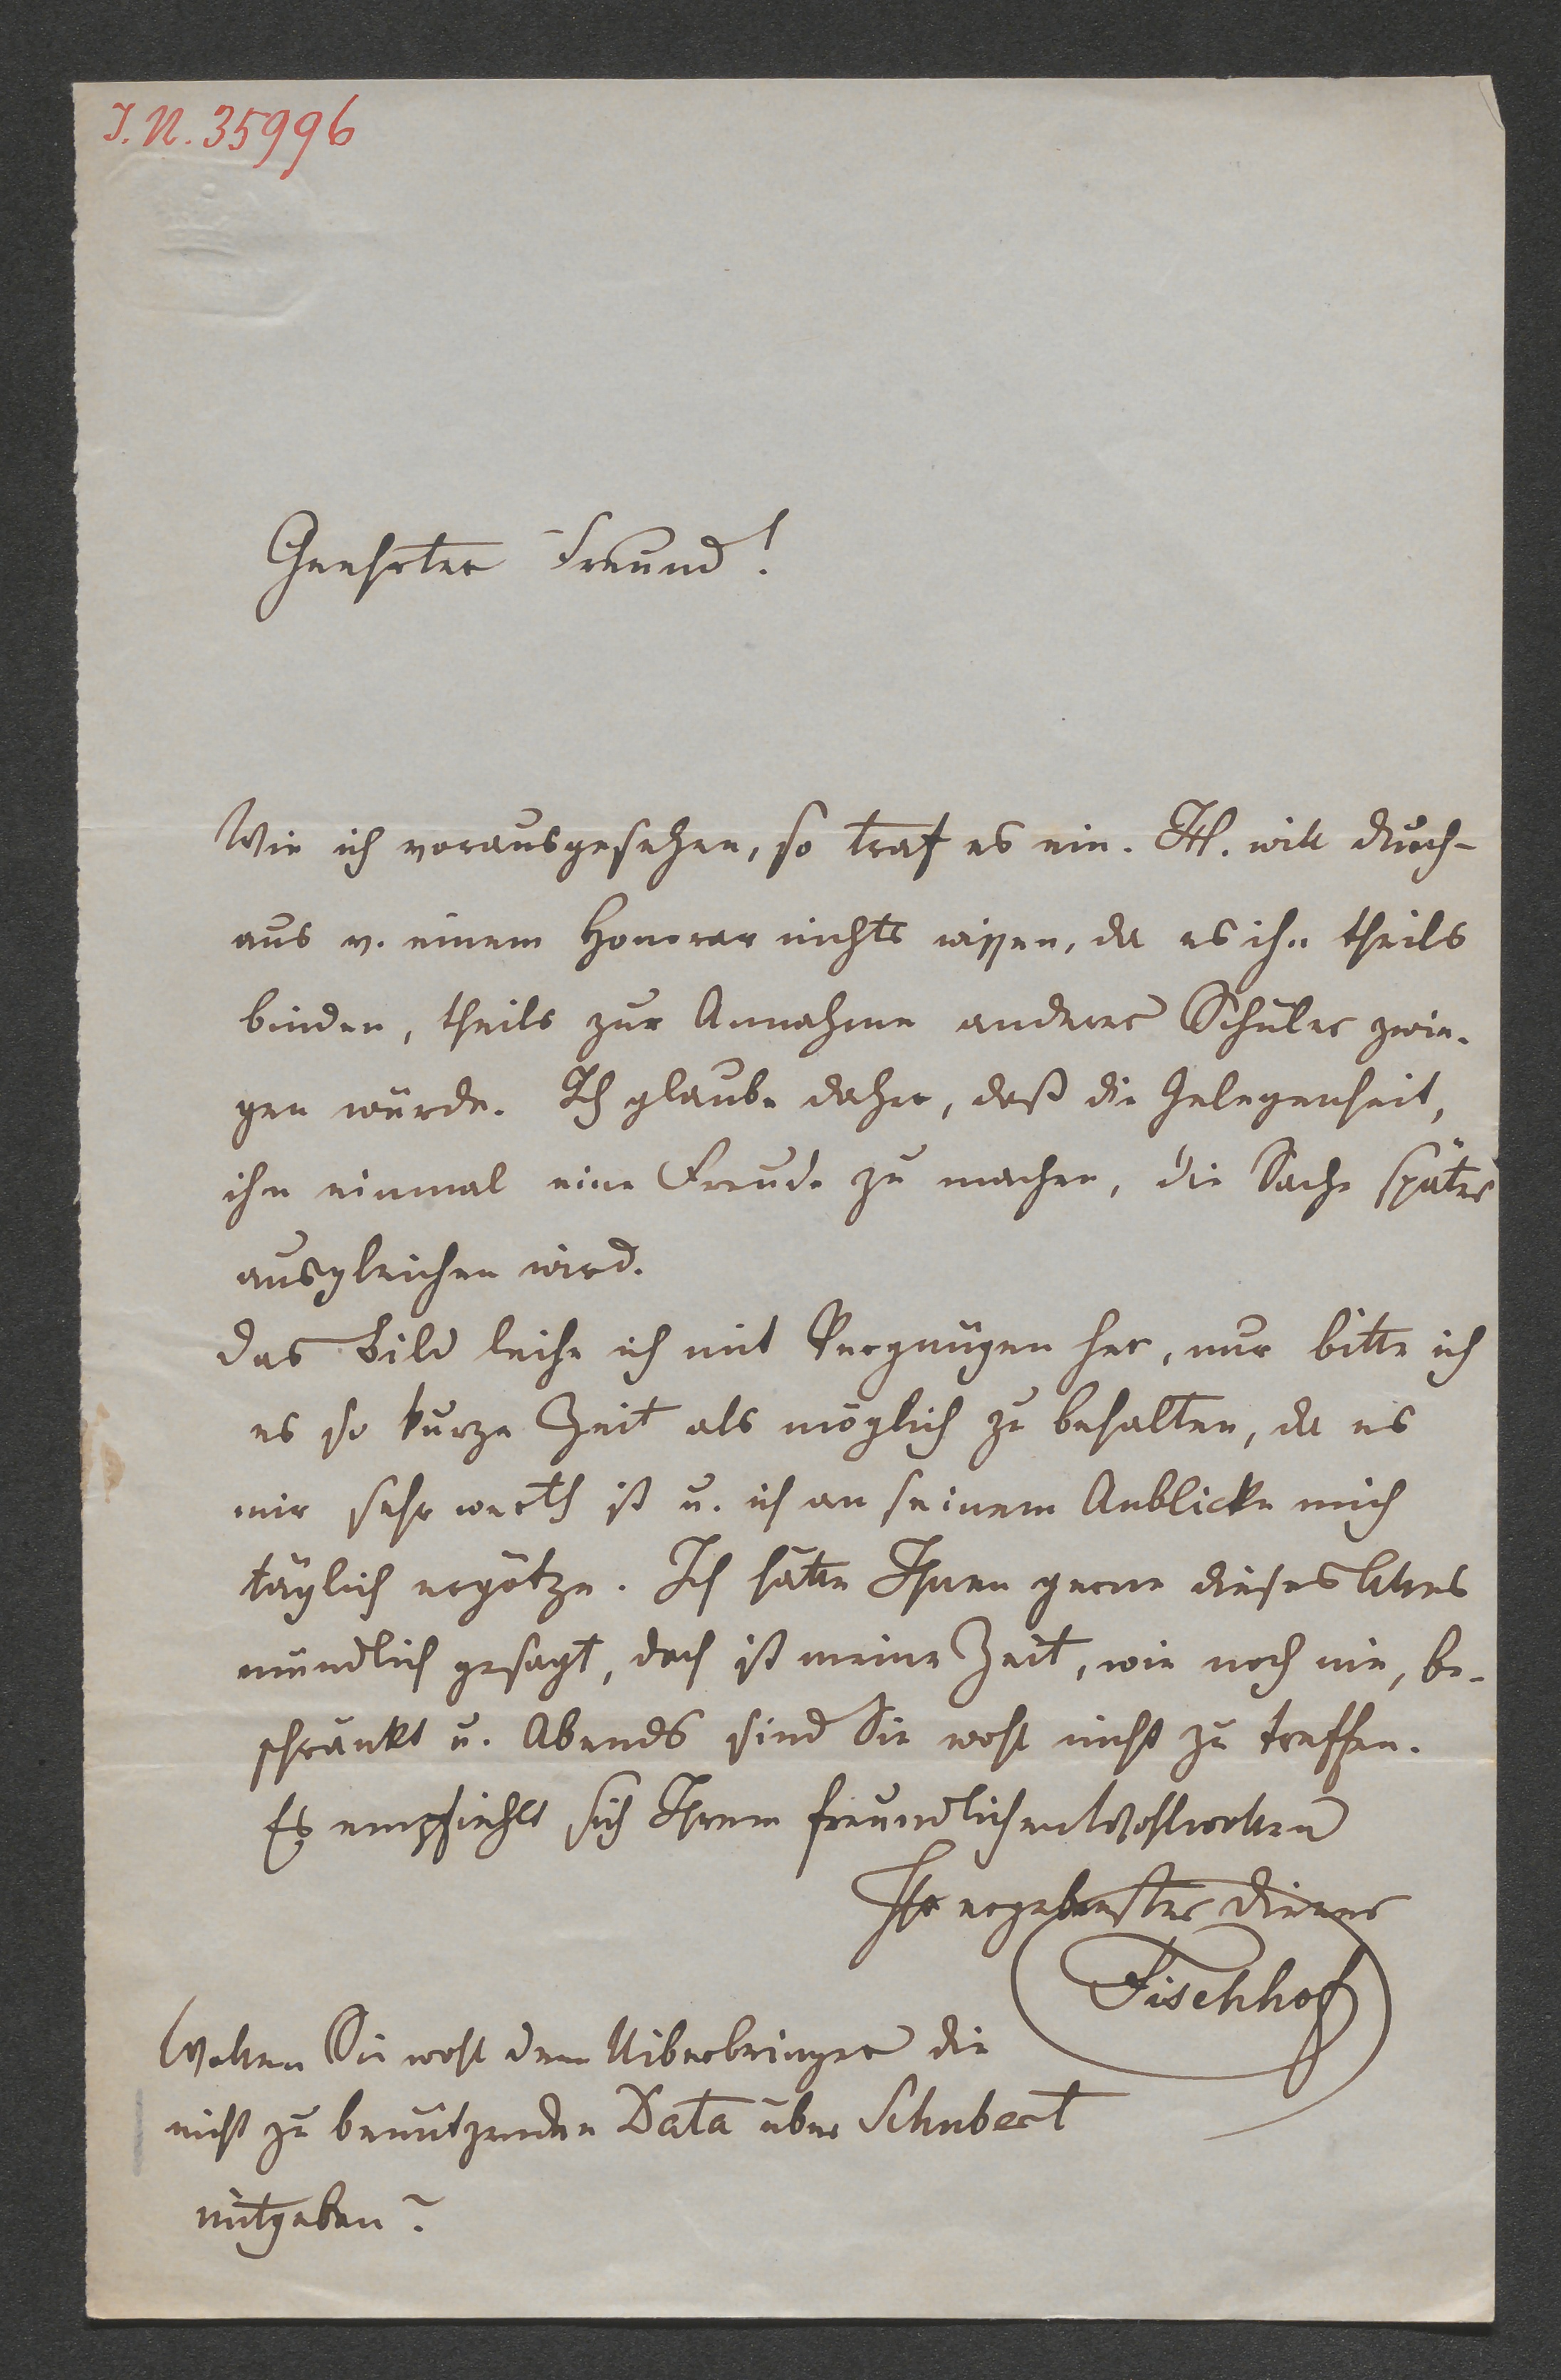 I. N. 35996
Geehrter Freund!
Wie ich vorausgesehen, so traf es ein. Th. will durch-
aus v. einem Honorar nichts wissen, da es ihn theils
binden, theils zur Annahme anderer Schüler zwin-
gen würde. Ich glaube daher, daß die Gelegenheit,
ihn einmal eine Freude zu machen, die Sache später
ausgleichen wird.
Das Bild leihe ich mit Vergnügen her, nur bitte ich
es so kurze Zeit als möglich zu behalten, da es
mir sehr werth ist u. ich an seinem Anblicke mich
täglich ergötze. Ich hätte Ihnen gerne dieses Alles
mündlich gesagt, doch ist meine Zeit, wie noch nie, be-
schränkt u. Abends sind Sie wohl nicht zu treffen.
Es empfiehlt sich Ihrem freundlichen Wohlwollen
Ihr ergebenster Diener
Fischhof
Wollen Sie wohl dem Uiberbringer die
nicht zu benützenden Data über Schubert
mitgeben?